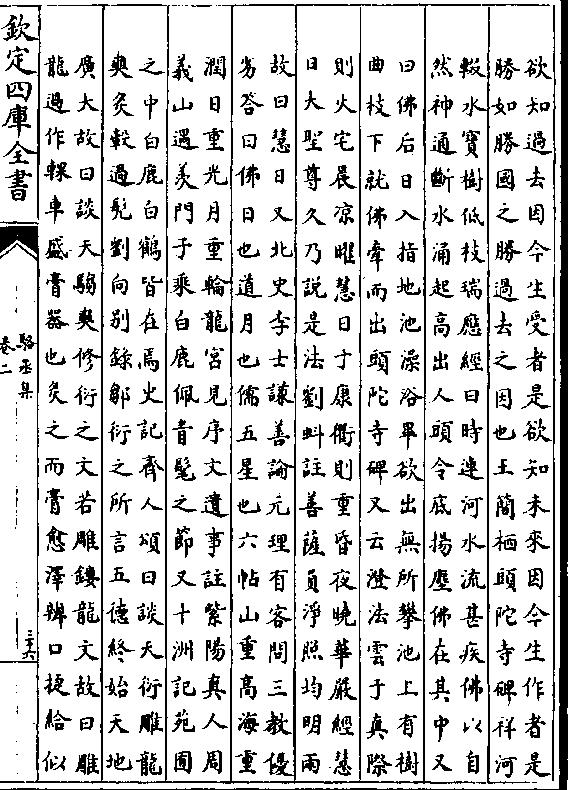 欲知過去因今生受者是欲知未來因今生作者是
勝如勝國之勝過去之因也王簡栖頭陀寺碑祥河
輟水寶樹低枝瑞應經曰時連河水流甚疾佛以自
然神通斷水涌起高出人頭令底揚塵佛在其中又
曰佛后日入指地池澡浴畢欲出無所攀池上有樹
曲枝下就佛牽而出頭陀寺碑又云澄法雲于真際
則火宅晨凉曜慧日于康衢則重昏夜曉華嚴經慧
日大聖尊久乃說是法劉虯註善薩員淨照均明兩
故曰慧日又北史李士謙善論元理有客問三教優
劣答曰佛日也道月也儒五星也六帖山重高海重
潤日重光月重輪龍宮見序文遺事註紫陽真人周
義山遇羨門子乘白鹿佩青髦之節又十洲記苑囿
之中白鹿白鶴皆在焉史記齊人頌曰談天衍雕龍
奭炙轂過髡劉向別錄鄒衍之所言五德終始天地
廣大故曰談天騶奭修衍之文若雕鏤龍文故曰雕
龍過作輠車盛膏器也炙之而膏愈澤辨口捷給似
欽定四庫全書
駱丞集
卷二
三六